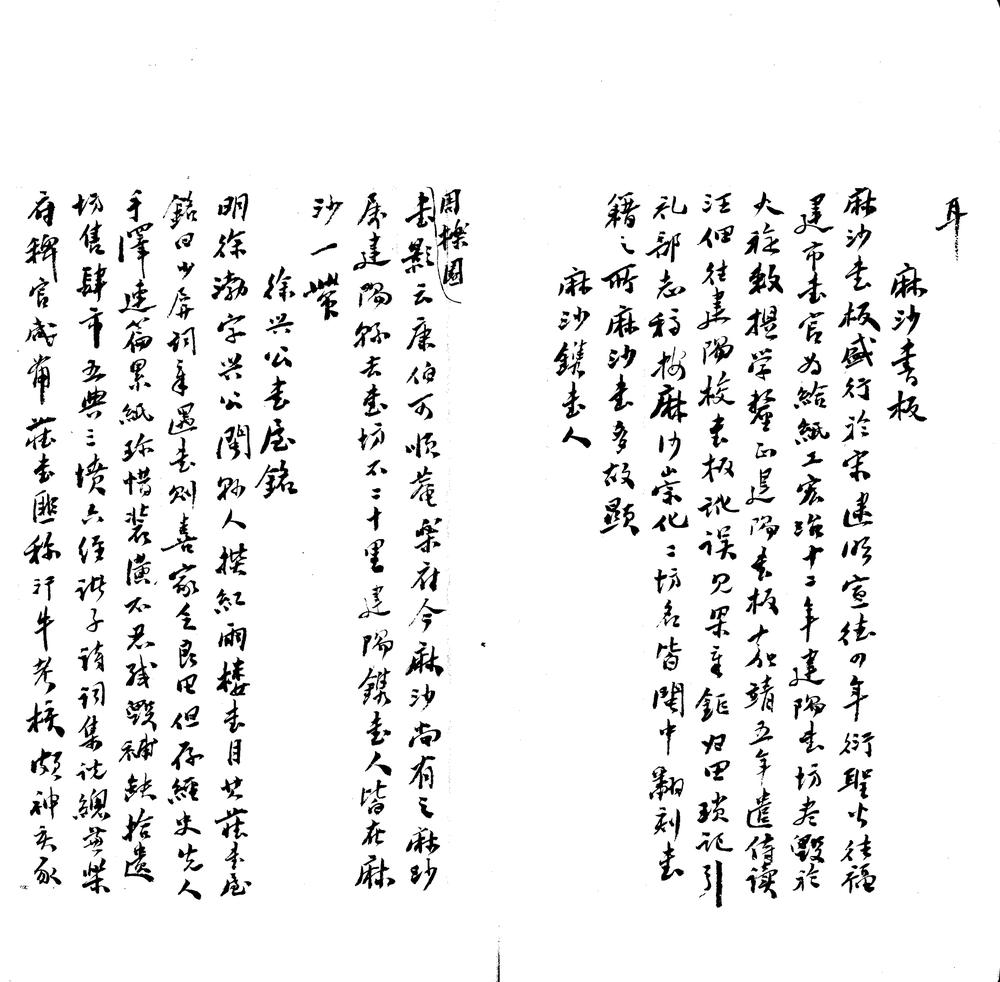 耳
麻沙書板
麻沙書板盛行於宋逮明宣德四年衍聖公往福
建市書官為給紙工宏治十二年建陽書坊尽毀於
火旋敕提学釐正建陽書板十嘉靖五年遣侍读
汪佃往建陽校書板訛误见梁章鉅归田琐记引
礼部志稿按麻沙崇化二坊名皆閩中翻刻書
籍之所麻沙書多故顯
麻沙鐫書人
周櫟園
書影云康伯可順菴樂府今麻沙尚有之麻沙
屬建陽縣去書坊不二十里建陽鐫書人皆在麻
沙一帶
徐兴公書屋銘
明徐渤字兴公閩縣人撰紅雨樓書目其藏書屋
銘曰少弄词章遇書则喜家乏良田但存經史先人
手澤連篇累紙珍惜裝潢不忍残毀補缺拾遺
坊售肆市五典三墳六经诸子诗词集说總兼柴
府稗官咸备藏書匪称汗牛考核頗神亥豕